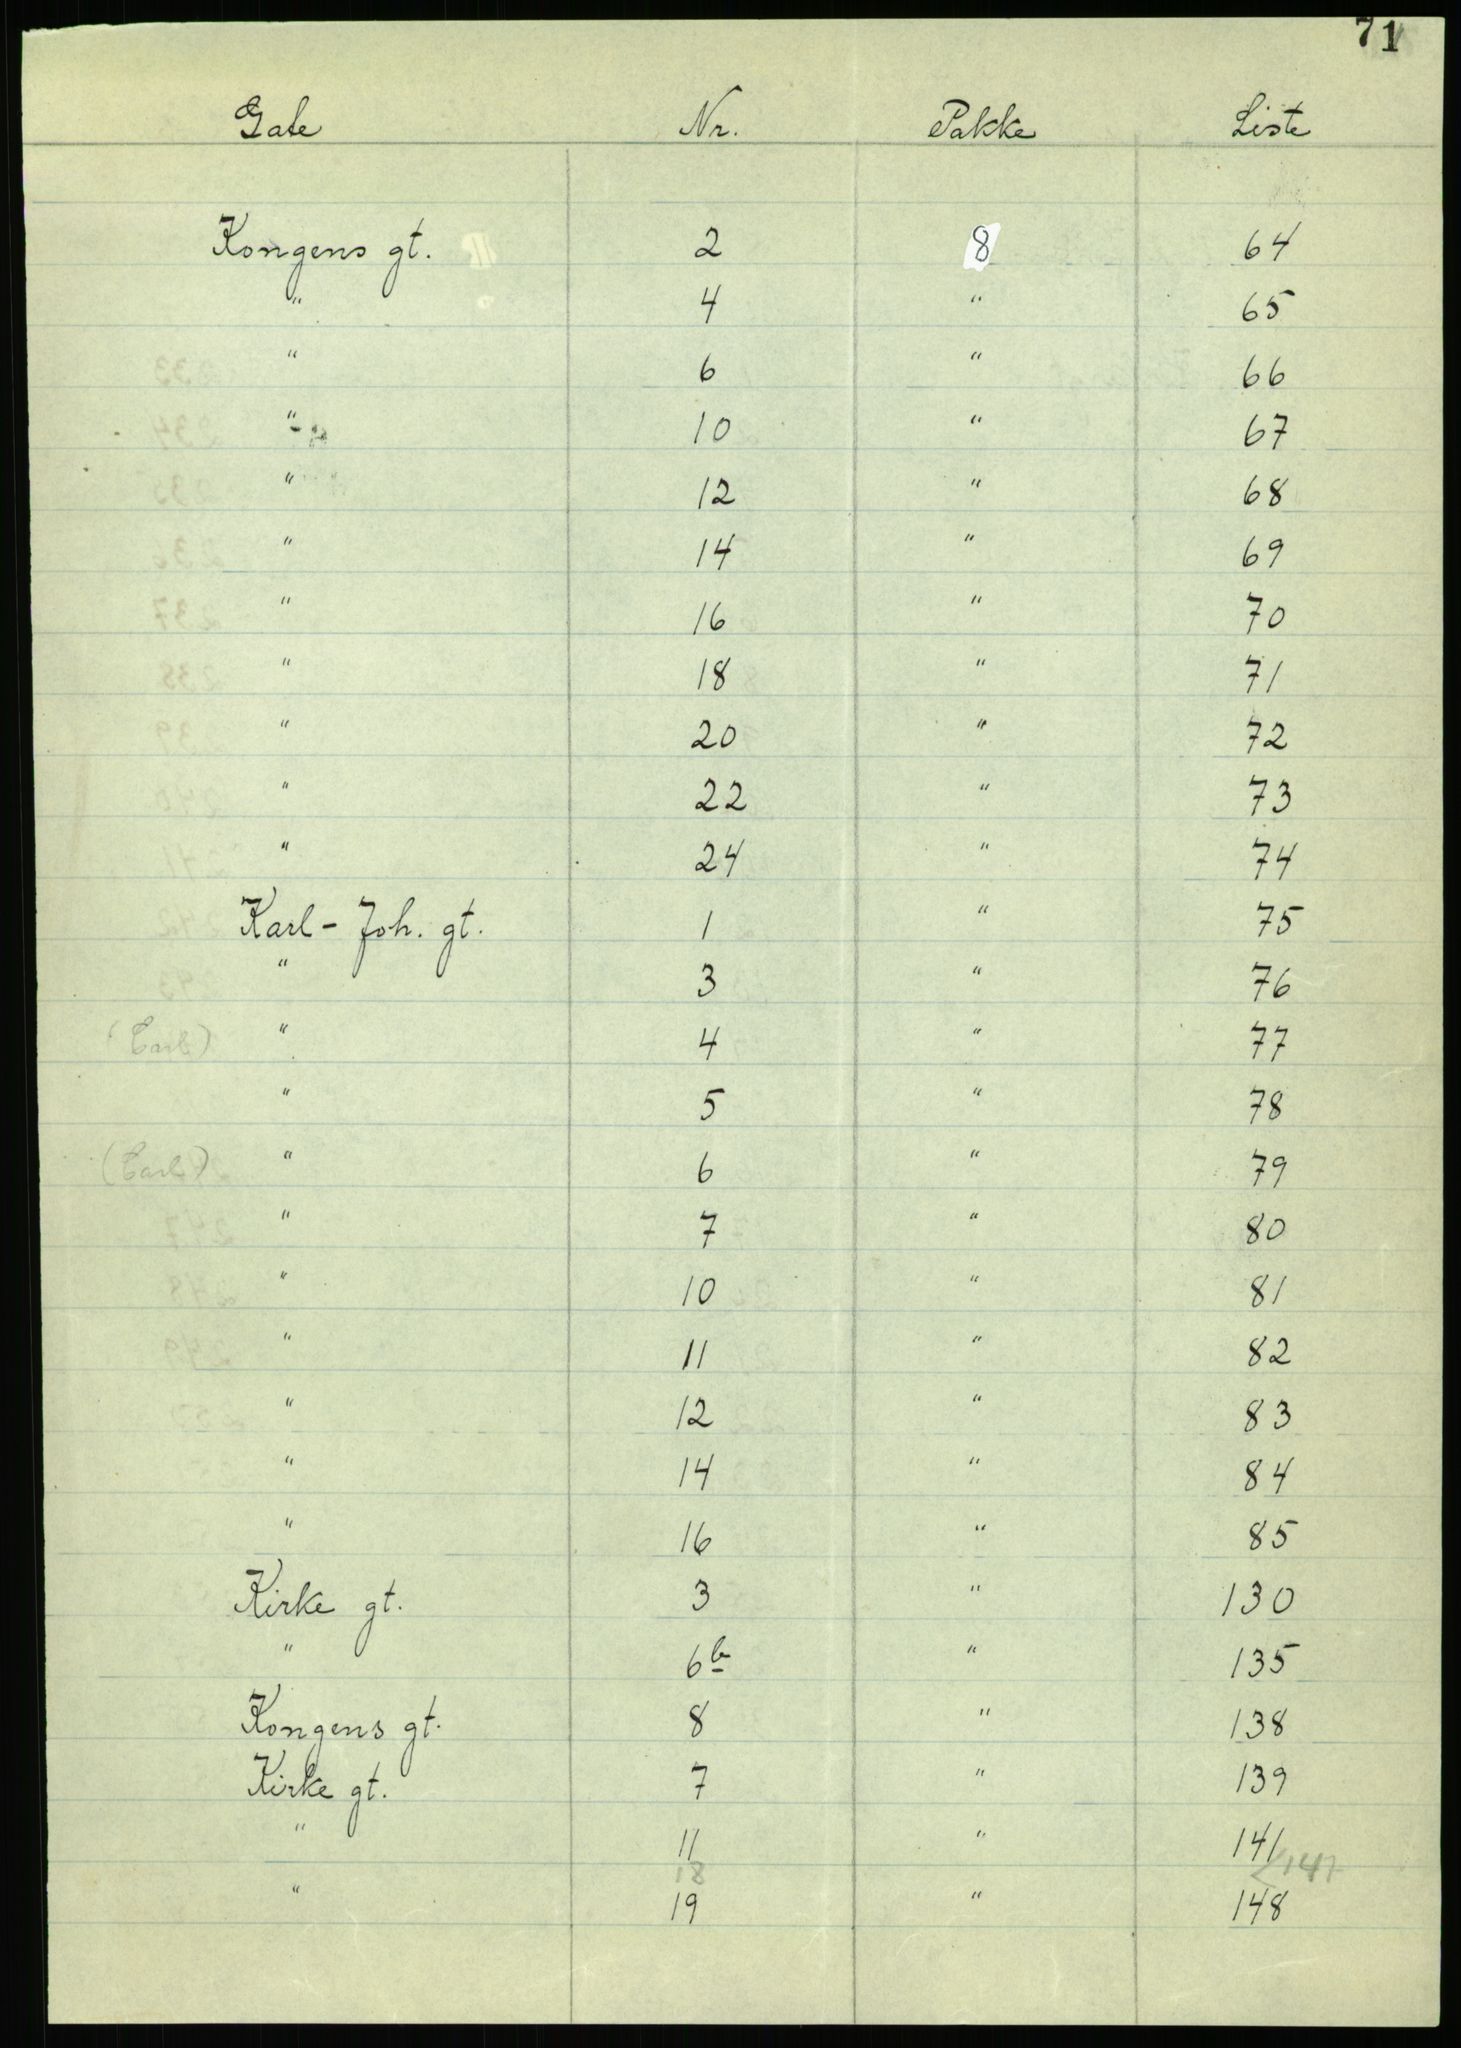 71
Gate Nr. Pakke Liste
Kongens gt. 2 8 64
" 4 " 65
" 6 " 66
" 10 " 67
" 12 " 68
" 14 " 69
" 16 " 70
" 18 " 71
" 20 " 72
" 22 " 73
" 24 " 74
Karl - Joh. gt. 1 " 75
" 3 " 76
(Carl) " 4 " 77
" 5 " 78
(Carl) " 6 " 79
" 7 " 80
" 10 " 81
" 11 " 82
" 12 " 83
" 14 " 84
" 16 " 85
Kirke gt. 3 " 130
" 6b " 135
Kongens gt. 8 " 138
Kirke gt. 7 " 139
" 11 " 141
18 147
" 19 " 148